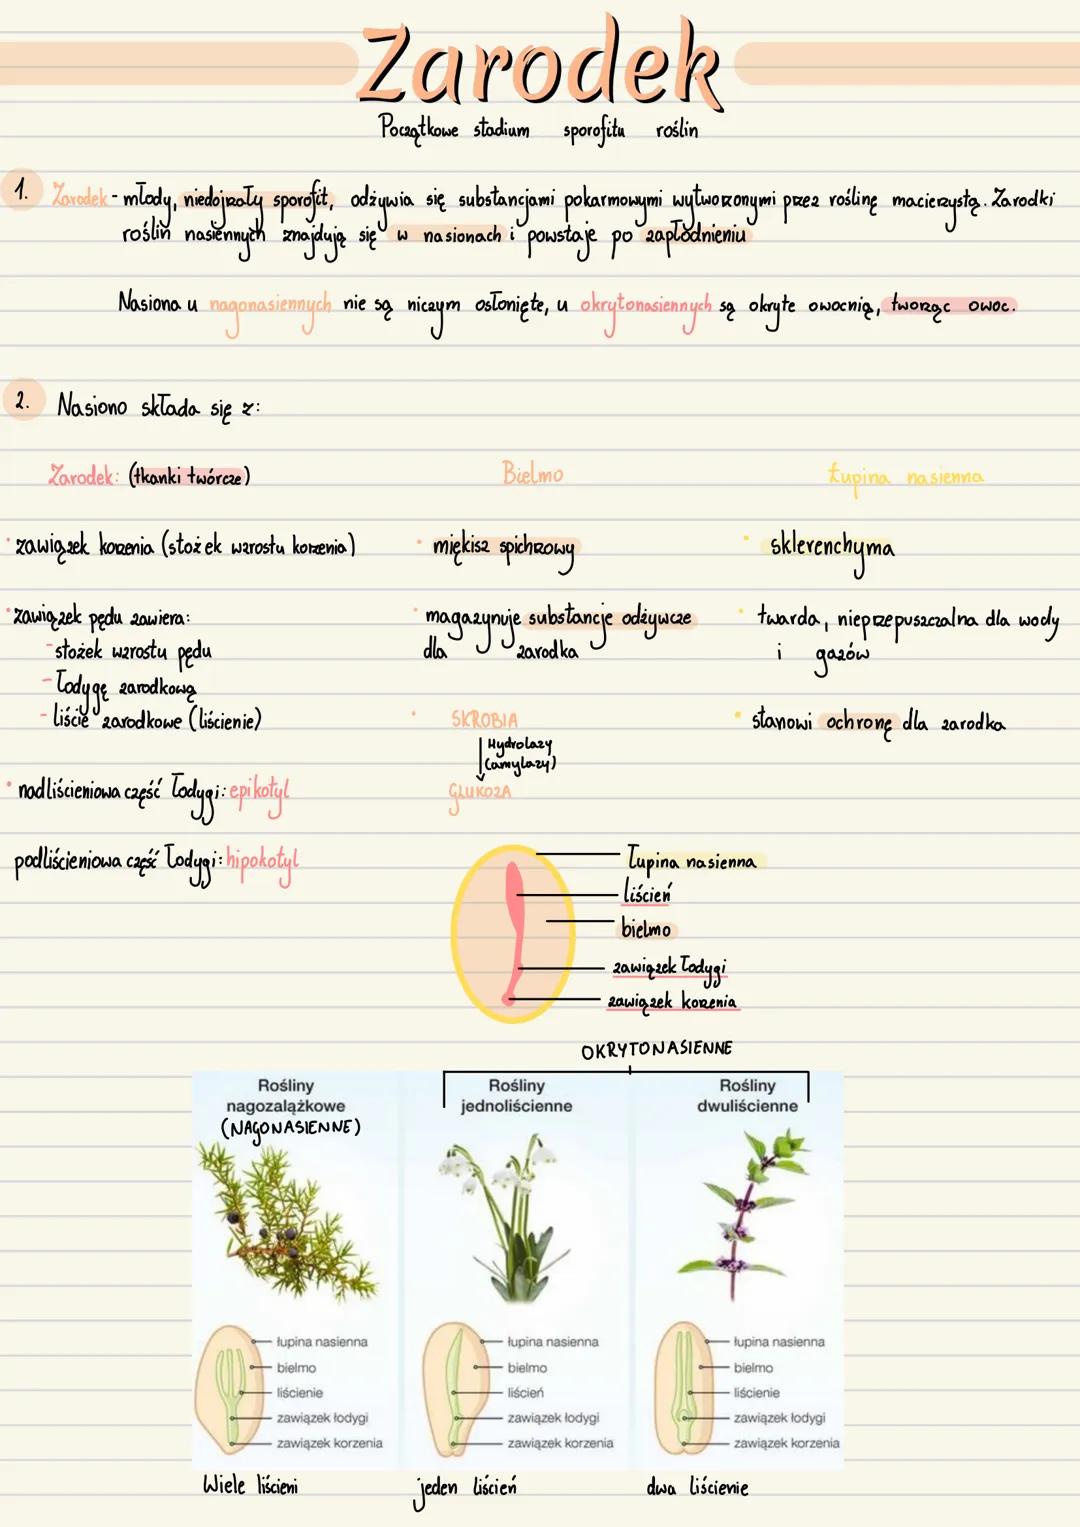 Zarodek
Początkowe stadium sporofitu roślin
1. Zarodek - młody, niedojrzały sporofit, odżywia się substancjami pokarmowymi wytworzonymi przez roślinę macierzystą. Zarodki
roślin nasiennych znajdują się w nasionach i powstaje po zapłodnieniu
Nasiona u nagonasiennych nie są niczym osłonięte, u okrytonasiennych są okryte owocnią, tworząc owoc.
2. Nasiono składa się z:
Zarodek: (tkanki twórcze)
· zawiązek korzenia (stożek wzrostu korzenia)
· zawiązek pędu zawiera:
- stożek wzrostu pędu
- łodygę zarodkową
- liście zarodkowe (liścienie)
· nadliścieniowa część łodygi: epikotyl
podliścieniowa część łodygi: hipokotyl
Bielmo
· miękisz spichrzowy
· magazynuje substancje odżywcze
dla zarodka
· SKROBIA
Hydrolazy
(amylazy)
GLUKOZA
Łupina nasienna
· sklerenchyma
· twarda, nieprzepuszczalna dla wody
i gazów
· stanowi ochronę dla zarodka
łupina nasienna
liścień
bielmo
zawiązek łodygi
zawiązek korzenia
OKRYTONASIENNE
Rośliny
nagozalążkowe
(NAGONASIENNE)
łupina nasienna
bielmo
liścienie
zawiązek łodygi
zawiązek korzenia
Wiele liścieni
Rośliny
jednoliścienne
łupina nasienna
bielmo
liścień
zawiązek łodygi
zawiązek korzenia
jeden liścień
Rośliny
dwuliścienne
łupina nasienna
bielmo
liścienie
zawiązek łodygi
zawiązek korzenia
dwa liścienie